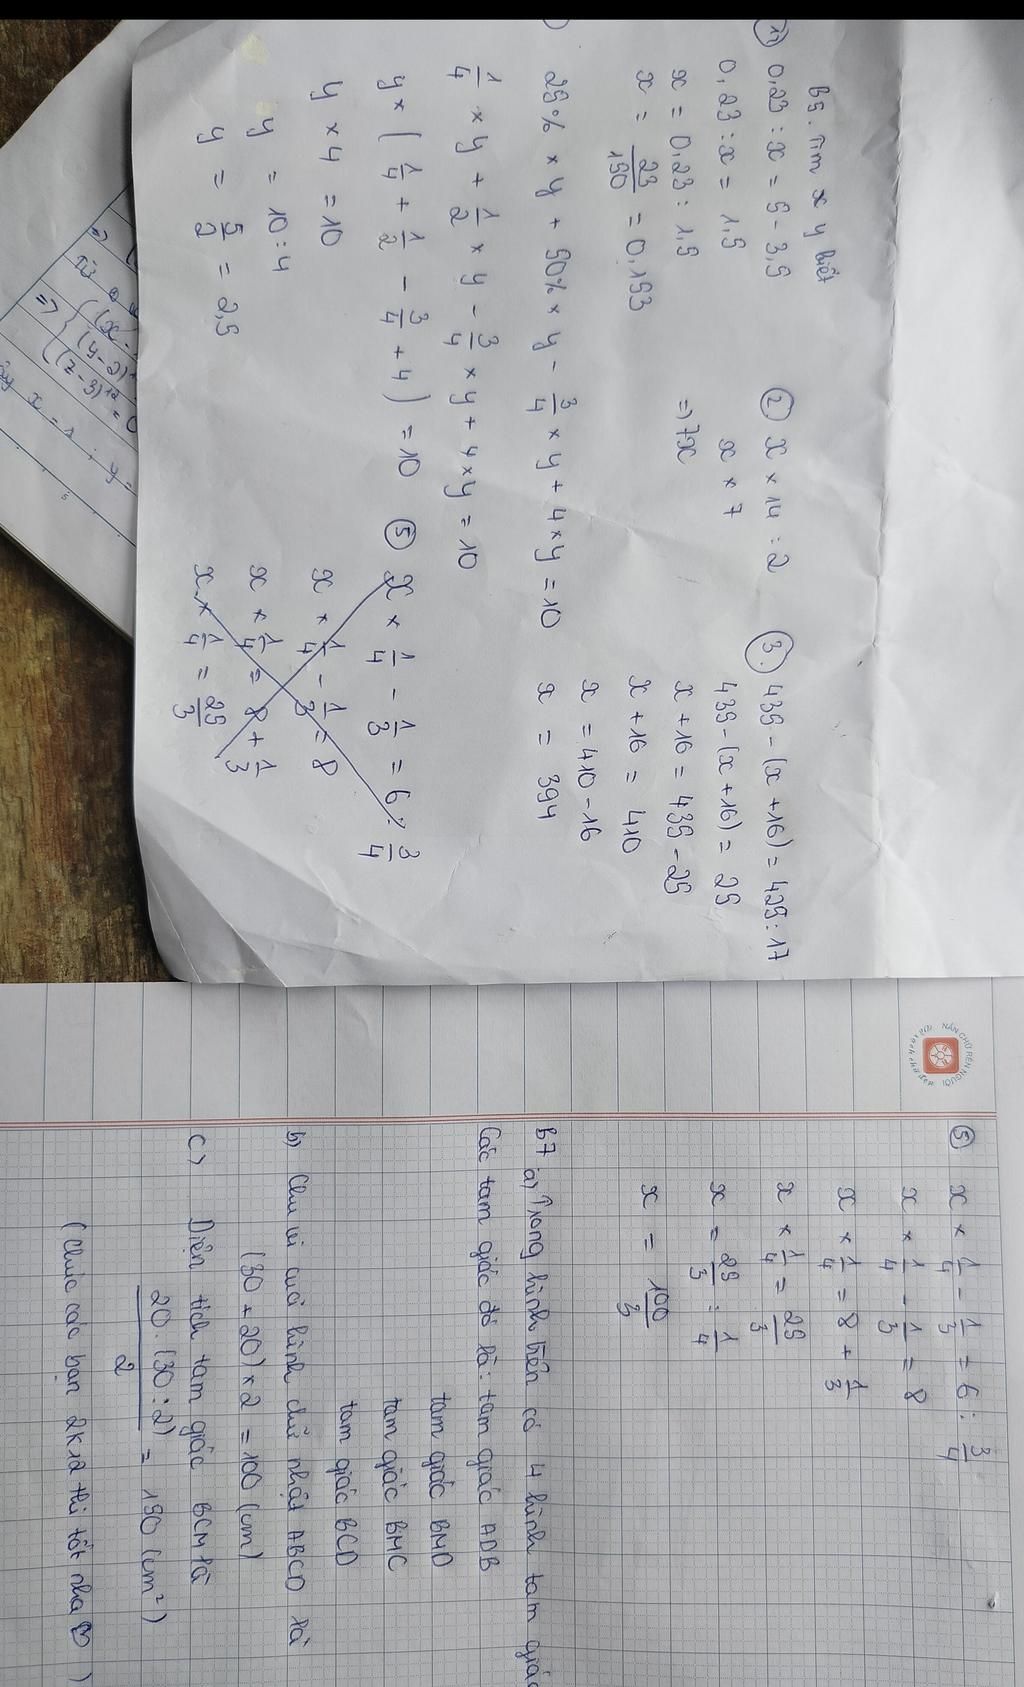 B5. Tìm x y biết
11 0,23 : x = 5 - 3,5
0,23 : x = 1,5
x = 0,23 : 1,5
x = 23/150 = 0,153
2 x × 14 : 2
x × 7
=> 7x
3. 435 - (x + 16) = 425 : 17
435 - (x + 16) = 25
x + 16 = 435 - 25
x + 16 = 410
x = 410 - 16
x = 394
25% × y + 50% × y - 3/4 × y + 4 × y = 10
1/4 × y + 1/2 × y - 3/4 × y + 4 × y = 10
y × (1/4 + 1/2 - 3/4 + 4) = 10
y × 4 = 10
y = 10 : 4
y = 5/2 = 2,5
5 x × 1/4 - 1/3 = 6 : 3/4
x × 1/4 - 1/3 = 8
x × 1/4 = 8 + 1/3
x × 1/4 = 25/3
(x -
(y - 2)
(z - 3) = 0
NẮN CHỮ RÈN NGƯỜI
5 x × 1/4 - 1/3 = 6 : 3/4
x × 1/4 - 1/3 = 8
x × 1/4 = 8 + 1/3
x × 1/4 = 25/3
x = 25/3 : 1/4
x = 100/3
B7 a) Trong hình trên có 4 hình tam giác
Các tam giác đó là: tam giác ADB
tam giác BMD
tam giác BMC
tam giác BCD
b) Chu vi của hình chữ nhật ABCD là
(30 + 20) × 2 = 100 (cm)
c) Diện tích tam giác BCM là
20 . (30 : 2) / 2 = 150 (cm²)
(Chúc các bạn 2k12 thi tốt nha ♡ )